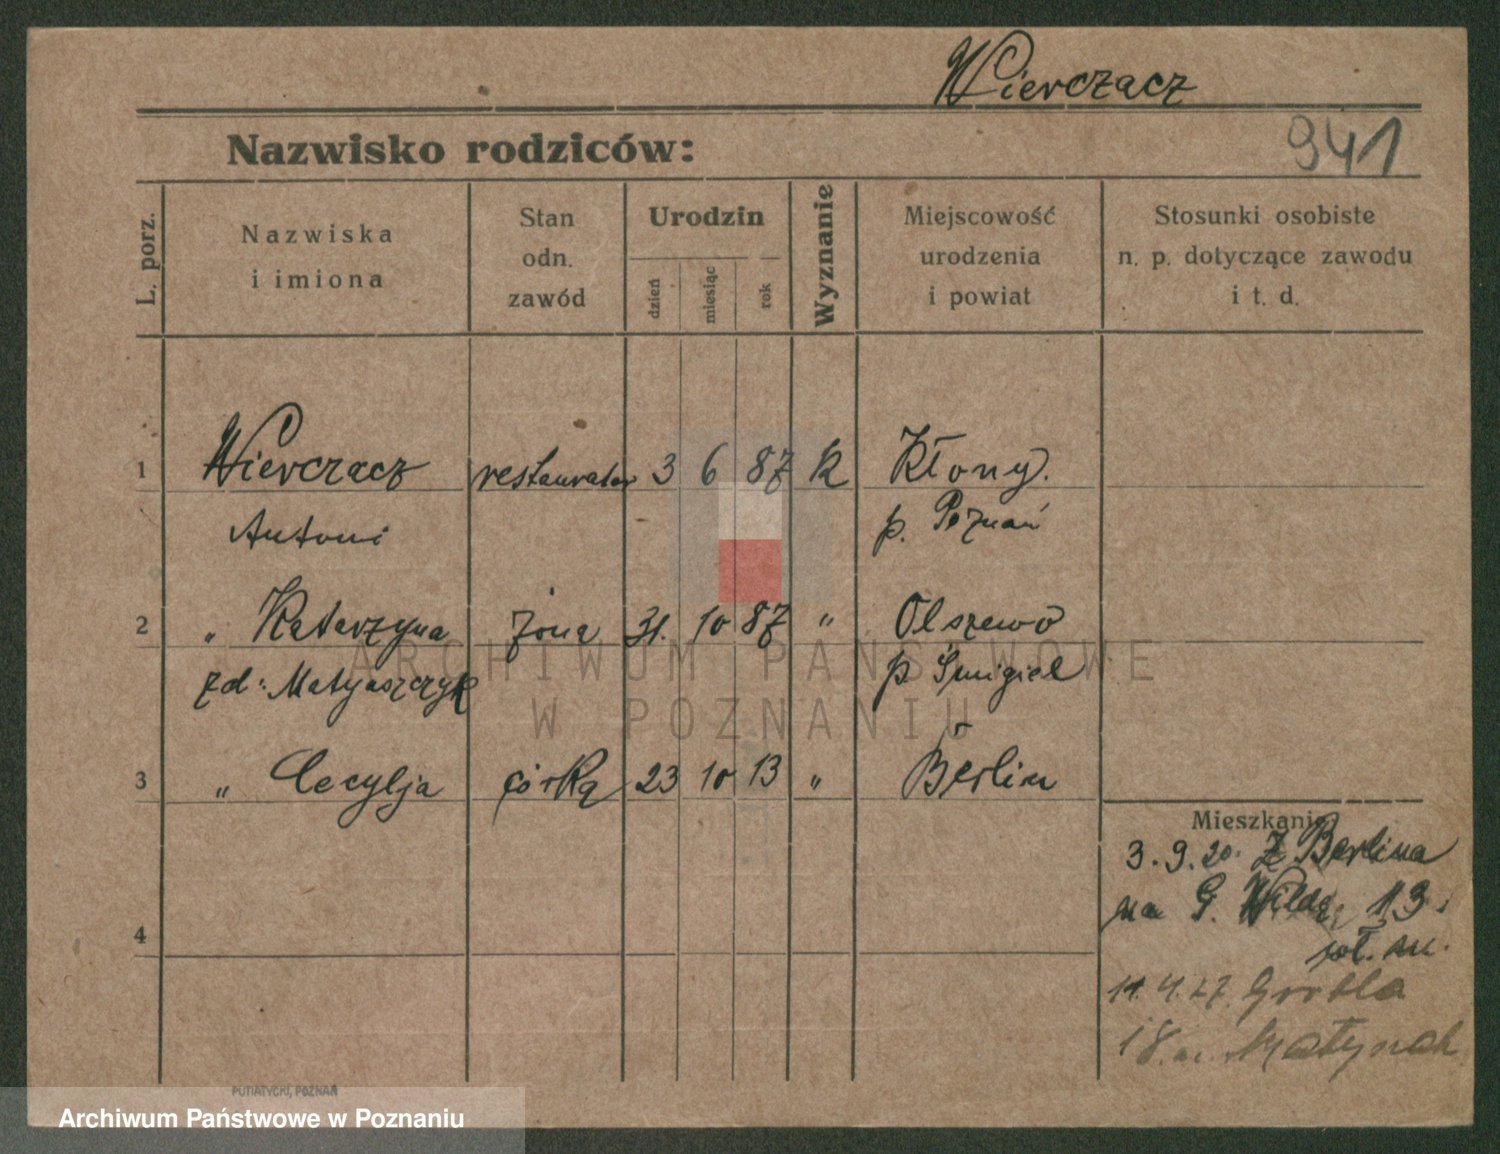 Wierczacz
Nazwisko rodziców:
941
L. porz.
Nazwiska
i imiona
Stan
odn.
zawód
Urodzin
dzień
miesiąc
rok
Wyznanie
Miejscowość
urodzenia
i powiat
Stosunki osobiste
n. p. dotyczące zawodu
i t. d.
1 Wierczacz restaurator 3 6 87 k Kłony.
Antoni p. Poznań
2 „ Katarzyna żona 31. 10 87 „ Olszewo
zd: Matyaszczyk p Śmigiel
3 „ Cecylja córka 23 10 13 „ Berlin
Mieszkanie
3.9.20. Z Berlina
na G. Wildę 13
4
14.4.27. Grobla
18. m. Matynak
ARCHIWUM PAŃSTWOWE
W POZNANIU
PUTIATYCKI, POZNAŃ
Archiwum Państwowe w Poznaniu